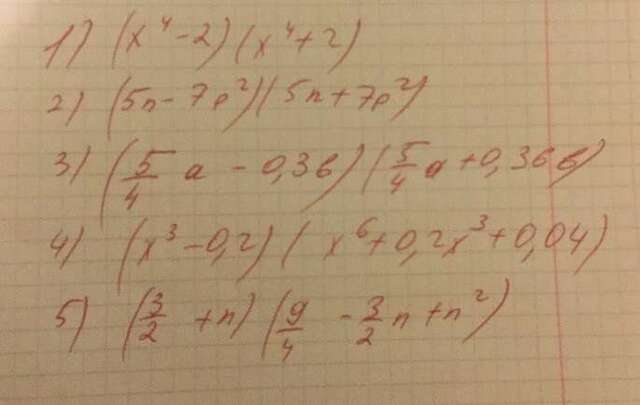 1) (x⁴ - 2)(x⁴ + 2)
2) (5n - 7p²)(5n + 7p²)
3) (5/4 a - 0,3в)(5/4 a + 0,3в в)
4) (x³ - 0,2)(x⁶ + 0,2x³ + 0,04)
5) (3/2 + n)(9/4 - 3/2 n + n²)